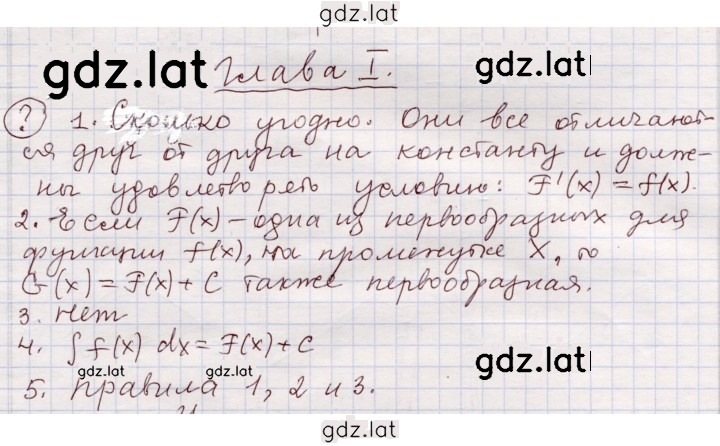 gdz.lat
gdz.lat Глава I. gdz.lat
? 1. Сколько угодно. Они все отличают-
ся друг от друга на константу и долж-
ны удовлетворять условию: F'(x) = f(x).
2. Если F(x) – одна из первообразных для
функции f(x), на промежутке X, то
G(x) = F(x) + C также первообразная.
3. Нет
4. ∫ f(x) dx = F(x) + C
gdz.lat gdz.lat gdz.lat
5. Правила 1, 2 и 3.
gdz.lat